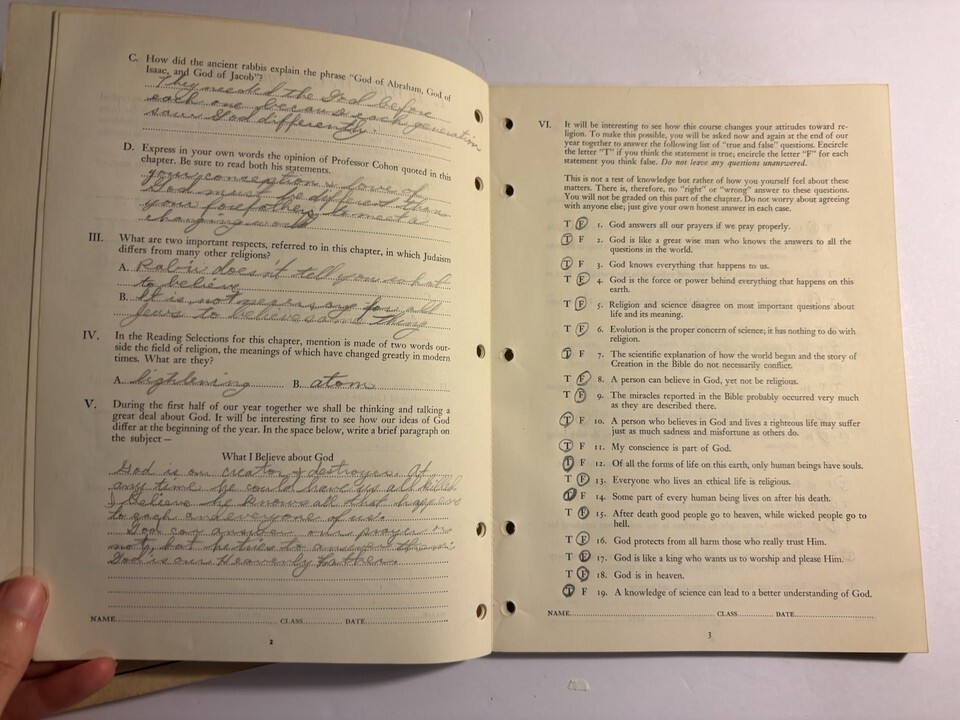 C. How did the ancient rabbis explain the phrase "God of Abraham, God of
Isaac, and God of Jacob"?
They needed the God before
each one because each generation
saw God differently.
D. Express in your own words the opinion of Professor Cohon quoted in this
chapter. Be sure to read both his statements.
your conception & love of
God must be different than
your forefathers to meet a
changing world
III. What are two important respects, referred to in this chapter, in which Judaism
differs from many other religions?
A. Rabin doesn't tell you what
to believe
B. It is not nessary for all
Jews to believe same thing
IV. In the Reading Selections for this chapter, mention is made of two words out-
side the field of religion, the meanings of which have changed greatly in modern
times. What are they?
A. lightening B. atom
V. During the first half of our year together we shall be thinking and talking a
great deal about God. It will be interesting first to see how our ideas of God
differ at the beginning of the year. In the space below, write a brief paragraph on
the subject —
What I Believe about God
God is our creator & destroyer. At
any time he could have us all killed
I believe he knows all that happens
to each and everyone of us.
God can answer our prayers or
not, but he tries to answer them
God is our Heavenly Father.
NAME CLASS DATE
2
VI. It will be interesting to see how this course changes your attitudes toward re-
ligion. To make this possible, you will be asked now and again at the end of our
year together to answer the following list of "true and false" questions. Encircle
the letter "T" if you think the statement is true; encircle the letter "F" for each
statement you think false. Do not leave any questions unanswered.
This is not a test of knowledge but rather of how you yourself feel about these
matters. There is, therefore, no "right" or "wrong" answer to these questions.
You will not be graded on this part of the chapter. Do not worry about agreeing
with anyone else; just give your own honest answer in each case.
T F 1. God answers all our prayers if we pray properly.
T F 2. God is like a great wise man who knows the answers to all the
questions in the world.
T F 3. God knows everything that happens to us.
T F 4. God is the force or power behind everything that happens on this
earth.
T F 5. Religion and science disagree on most important questions about
life and its meaning.
T F 6. Evolution is the proper concern of science; it has nothing to do with
religion.
T F 7. The scientific explanation of how the world began and the story of
Creation in the Bible do not necessarily conflict.
T F 8. A person can believe in God, yet not be religious.
T F 9. The miracles reported in the Bible probably occurred very much
as they are described there.
T F 10. A person who believes in God and lives a righteous life may suffer
just as much sadness and misfortune as others do.
T F 11. My conscience is part of God.
T F 12. Of all the forms of life on this earth, only human beings have souls.
T F 13. Everyone who lives an ethical life is religious.
T F 14. Some part of every human being lives on after his death.
T F 15. After death good people go to heaven, while wicked people go to
hell.
T F 16. God protects from all harm those who really trust Him.
T F 17. God is like a king who wants us to worship and please Him.
T F 18. God is in heaven.
T F 19. A knowledge of science can lead to a better understanding of God.
NAME CLASS DATE
3